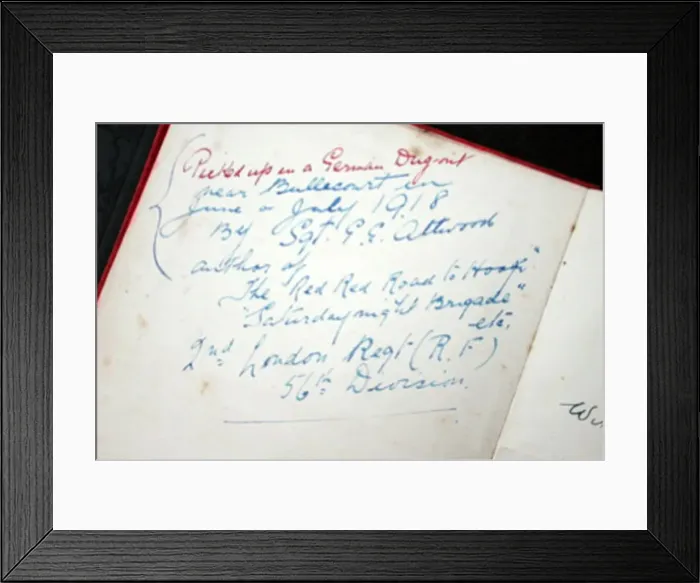 Picked up in a German Dug-out
near Bullecourt in
June or July 1918
By Sgt. G.E. Attwood
author of
The "Red Red Road to Hooge"
"Saturday night Brigade"
etc.
2nd London Regt (R.F)
56th Division.